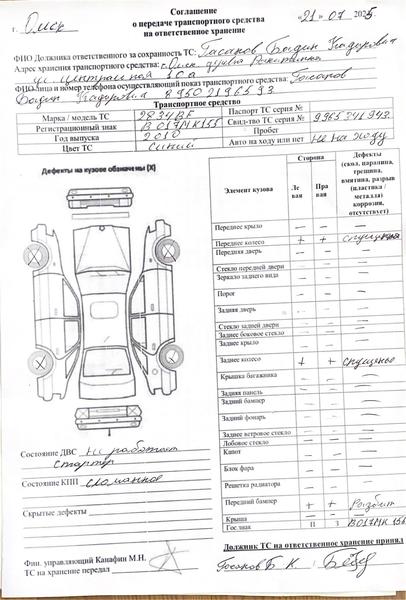 Соглашение
о передаче транспортного средства
на ответственное хранение
г. Омск «21» 07 2025.
ФИО Должника ответственного за сохранность ТС: Гасанов Бадин Кадирович
Адрес хранения транспортного средства: г. Омск, улица
ул. Центральная 10а
ФИО лица и номер телефона осуществляющий показ транспортного средства: Гасанов
Бадин Кадирович 89502196593
Транспортное средство
Марка / модель ТС 2834BF Паспорт ТС серия №
Регистрационный знак В017МК155 Свид-тво ТС серия № 9965341943
Год выпуска 2010 Пробег
Цвет ТС синий Авто на ходу или нет Не на ходу
Дефекты на кузове обозначены [X]
Элемент кузова Сторона Дефекты (скол, царапина, трещина, вмятина, разрыв (пластика / металла) коррозия, отсутствует)
Левая Правая
Переднее крыло — — —
Переднее колесо + + спущенное
Передняя дверь — — —
Стекло передней двери — — —
Зеркало заднего вида — — —
Порог — — —
Задняя дверь — — —
Стекло задней двери — — —
Заднее боковое стекло — — —
Заднее крыло — — —
Заднее колесо + + спущенное
Крышка багажника — — —
Задняя панель — — —
Задний бампер — — —
Задний фонарь — — —
Заднее ветровое стекло — — —
Лобовое стекло — — —
Капот — — —
Блок фара — — —
Решетка радиатора — — —
Передний бампер + + Разбит
Крыша — — —
Госзнак П З В017МК 155
Состояние ДВС не работает
стартер
Состояние КПП сломанное
Скрытые дефекты
Фин. управляющий Канафин М.Н.
ТС на хранение передал
Должник ТС на ответственное хранение принял
Гасанов Б К